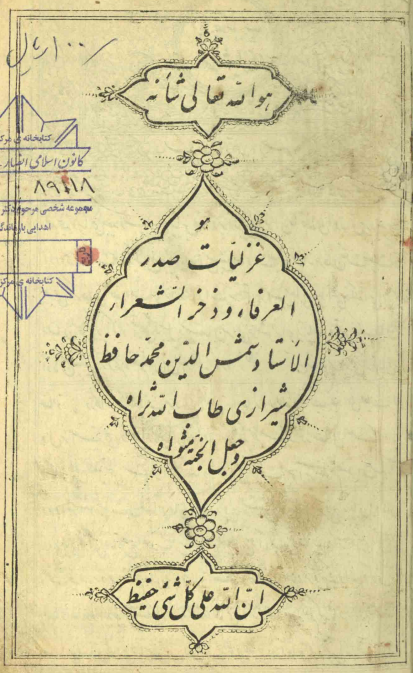 ۱۰۰ ریال
هو الله تعالی شأنه
کتابخانه ی مرک
کانون اسلامی انصار
۸۹۰۱۸
مجموعه شخصی مرحوم دکتر
اهدایی
کتابخانه ی مرکز
هو
غزلیّات صدر
العرفاء و ذخر الشعراء
الأستاد شمس الدین محمد حافظ
شیرازی طاب الله ثراه
و جعل الجنّة مثواه
انّ الله علی کلّ شئ حفیظ